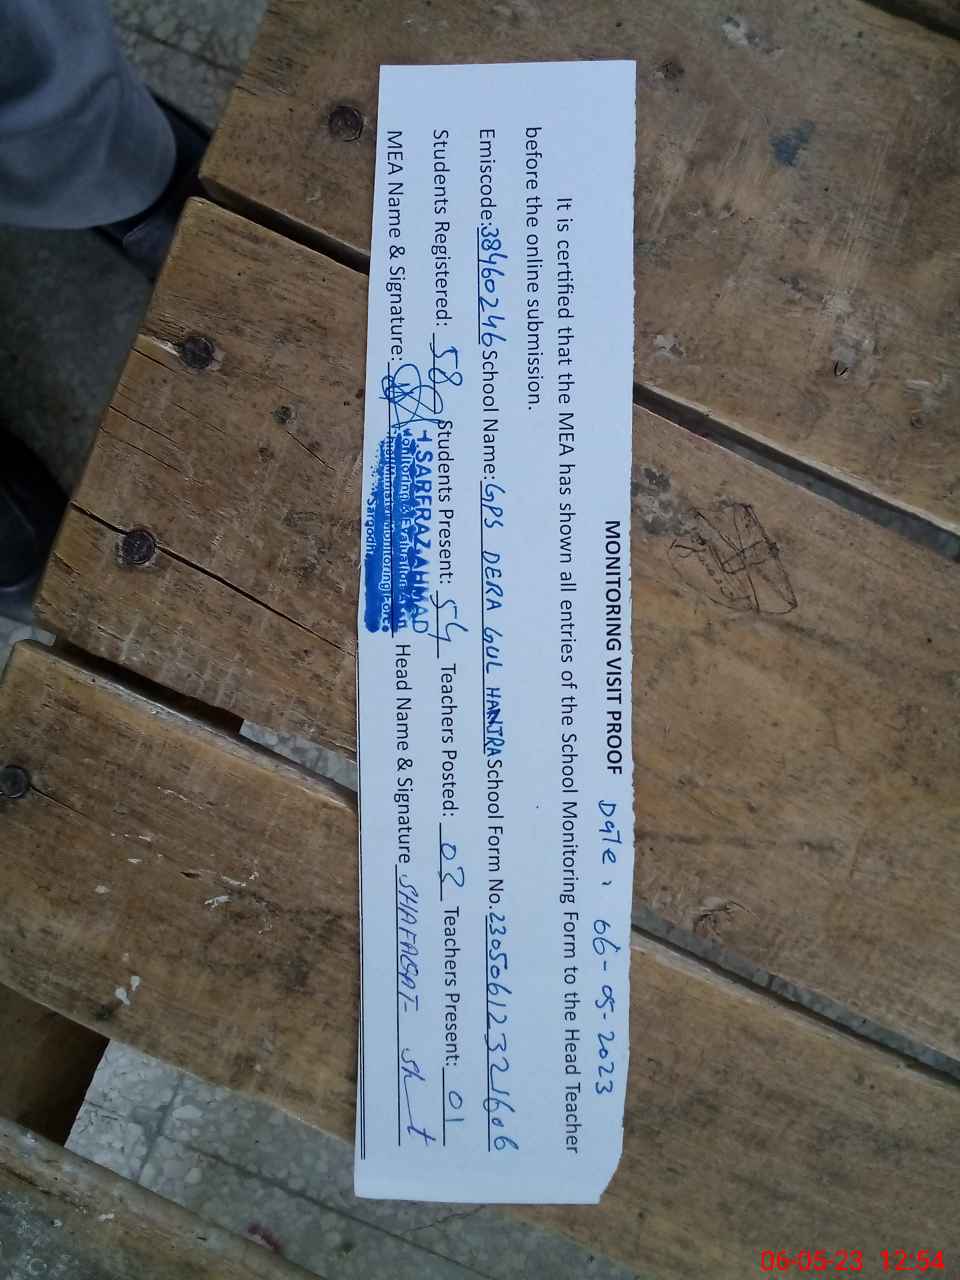 MONITORING VISIT PROOF Date: 06-05-2023
It is certified that the MEA has shown all entries of the School Monitoring Form to the Head Teacher
before the online submission.
Emiscode:38460246 School Name: GPS DERA GUL HANJRA School Form No. 23050612321606
Students Registered: 58 Students Present: 54 Teachers Posted: 03 Teachers Present: 01
MEA Name & Signature: Head Name & Signature SHAFAQAT
SARFRAZ AHMAD
Monitoring & Evaluation
Monitoring Force
Sargodha
06-05-23 12:54